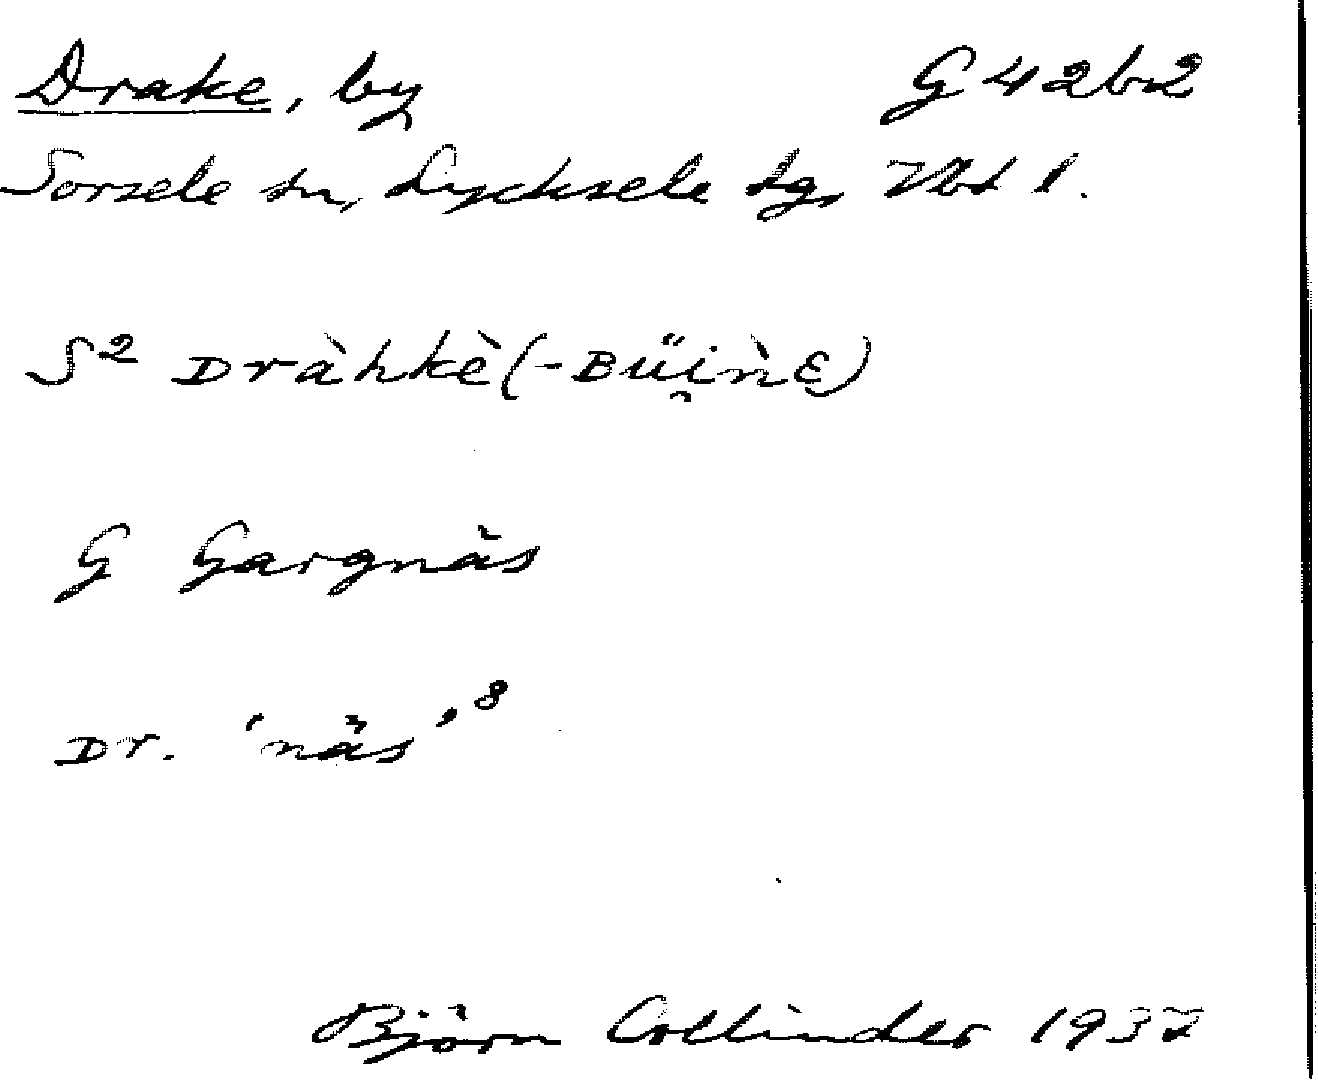 Drake, by G 42b2
Sorsele sn, Lycksele tg, Vbt l.
S² Dràhkè(-Bü̯iǹɛ)
G Gargnäs
Dr. 'näs'⁸
Björn Collinder 1937